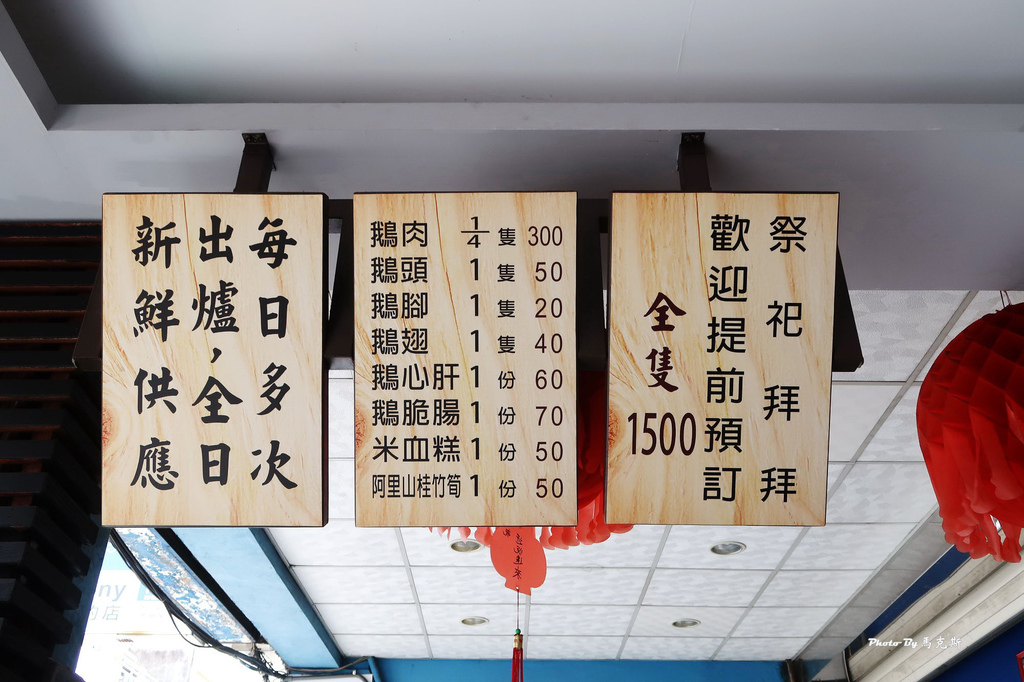 每日多次
出爐，全日
新鮮供應
鵝肉 1/4 隻 300
鵝頭 1 隻 50
鵝腳 1 隻 20
鵝翅 1 隻 40
鵝心肝 1 份 60
鵝脆腸 1 份 70
米血糕 1 份 50
阿里山桂竹筍 1 份 50
祭祀拜拜
歡迎提前預訂
全隻
1500
Photo By 馬克斯